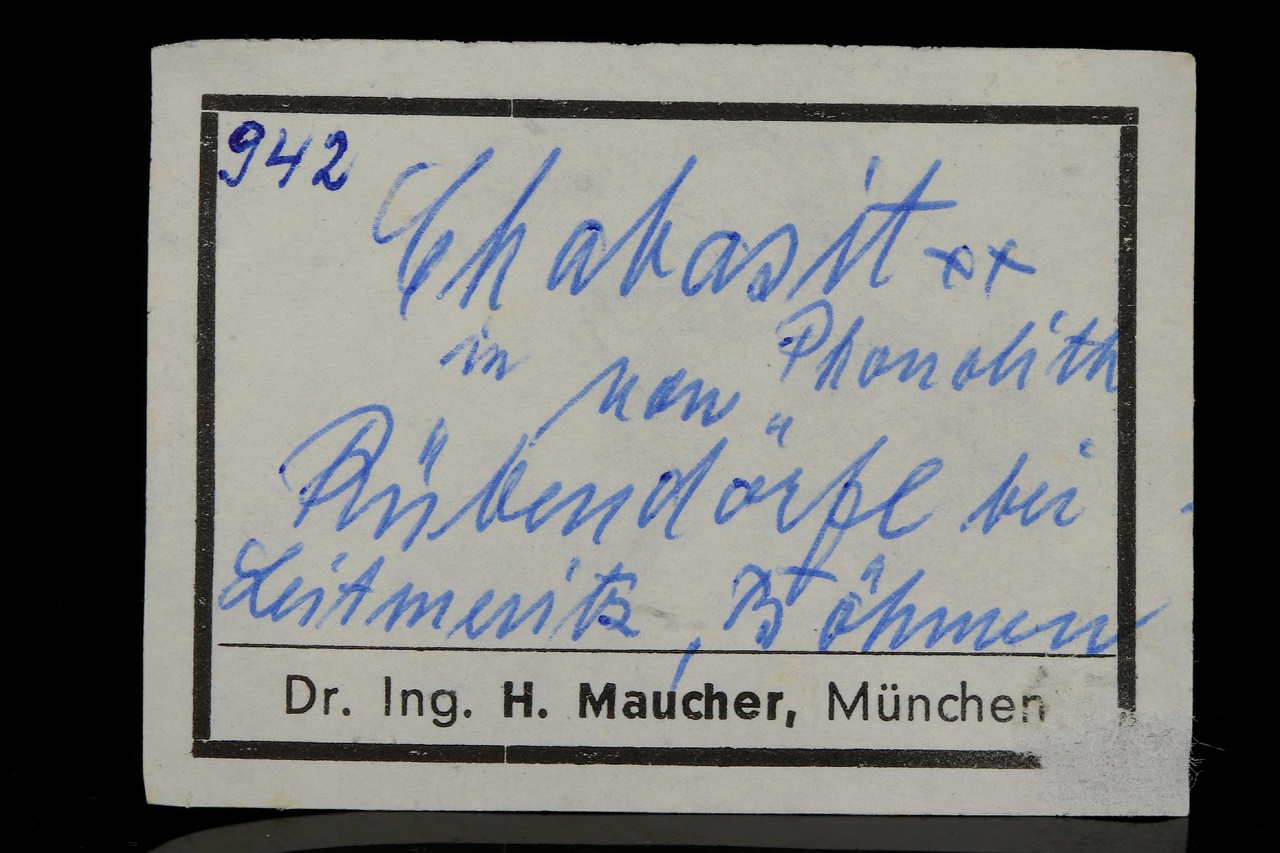 942
Chabasit xx
in Phonolith
von
Rübendörfl bei
Leitmeritz, Böhmen
Dr. Ing. H. Maucher, München